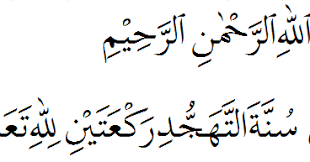 اللهِ الرَّحْمٰنِ الرَّحِيْمِ
سُنَّةَ التَّهَجُّدِ رَكْعَتَيْنِ لِلّٰهِ تَعَ